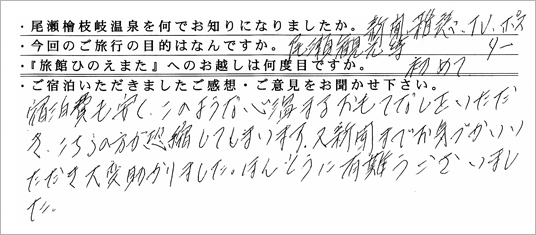 ・尾瀬檜枝岐温泉を何でお知りになりましたか。新聞、雑誌、TV、ポスター
・今回のご旅行の目的はなんですか。尾瀬観光等
・『旅館ひのえまた』へのお越しは何度目ですか。初めて
・ご宿泊いただきましたご感想・ご意見をお聞かせ下さい。
宿泊費も安く、このような心温まるおもてなしをいただ
き、こちらの方が恐縮してしまいます。又新聞までお気づかいい
ただき大変助かりました。ほんとうに有難うございまし
た。